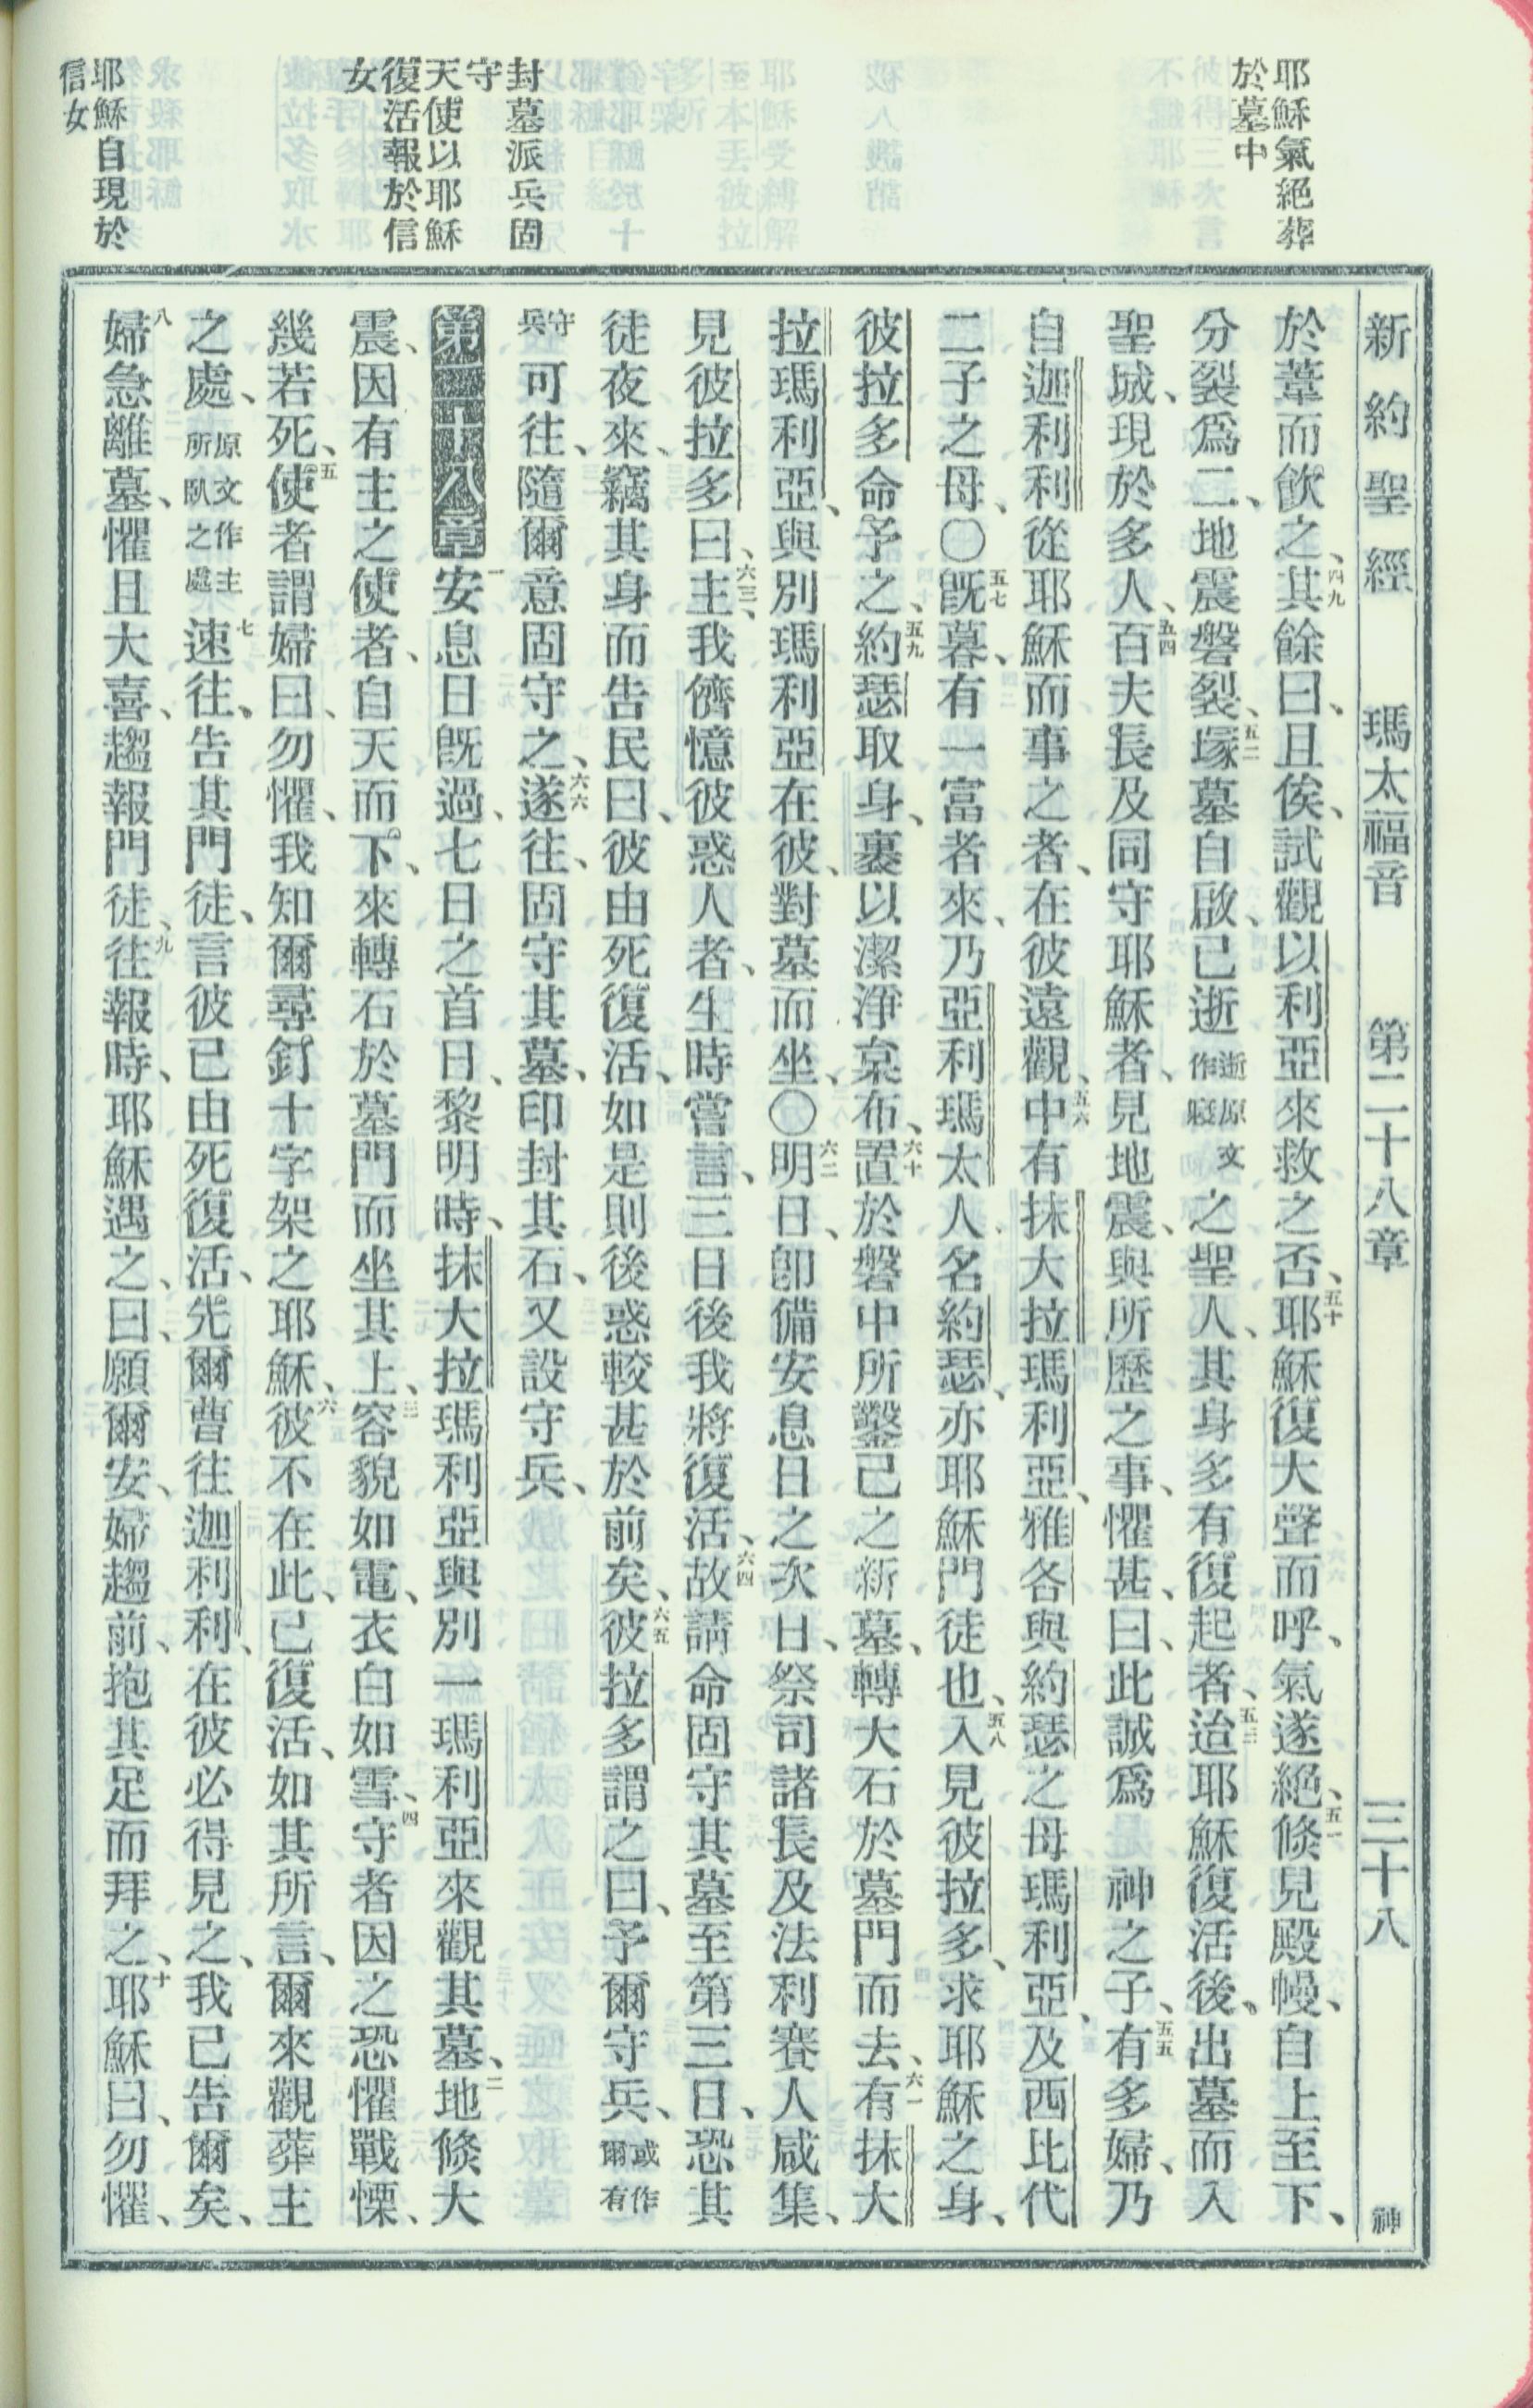 新約聖經 瑪太福音 第二十八章 三十八 神
耶穌氣絕葬
於墓中
封墓派兵固
守
天使以耶穌
復活報於信
女
耶穌自現於
信女
於葦而飲之、四九其餘曰、且俟、試觀以利亞來救之否、五十耶穌復大聲而呼、氣遂絕、五一倏見殿幔、自上至下、
分裂爲二、地震磐裂、五二塚墓自啟、已逝逝原文作寢之聖人、其身多有復起者、五三迨耶穌復活後、出墓而入
聖城、現於多人、五四百夫長及同守耶穌者、見地震、與所歷之事、懼甚、曰、此誠爲 神之子、五五有多婦、乃
自迦利利從耶穌而事之者、在彼遠觀、五六中有抹大拉瑪利亞、雅各與約瑟之母瑪利亞、及西比代
二子之母、〇五七既暮、有一富者來、乃亞利瑪太人名約瑟、亦耶穌門徒也、五八入見彼拉多、求耶穌之身、
彼拉多命予之、五九約瑟取身、裹以潔淨枲布、六十置於磐中所鑿己之新墓、轉大石於墓門而去、六一有抹大
拉瑪利亞、與別瑪利亞在彼、對墓而坐、〇六二明日、卽備安息日之次日、祭司諸長及法利賽人咸集、
見彼拉多曰、六三主、我儕憶彼惑人者、生時嘗言、三日後我將復活、六四故請命固守其墓至第三日、恐其
徒夜來、竊其身而告民曰、彼由死復活、如是則後惑較甚於前矣、六五彼拉多謂之曰、予爾守兵、或作爾有
守兵可往、隨爾意固守之、六六遂往、固守其墓、印封其石、又設守兵、
第二十八章 一安息日既過、七日之首日、黎明時、抹大拉瑪利亞與別一瑪利亞來觀其墓、二地倏大
震、因有主之使者、自天而下、來轉石於墓門而坐其上、三容貌如電、衣白如雪、四守者因之恐懼戰慄、
幾若死、五使者謂婦曰、勿懼、我知爾尋釘十字架之耶穌、六彼不在此、已復活、如其所言、爾來觀葬主
之處、原文作主所臥之處七速往、告其門徒、言彼已由死復活、先爾曹往迦利利、在彼必得見之、我已告爾矣、
八婦急離墓、懼且大喜、趨報門徒、九往報時、耶穌遇之、曰、願爾安、婦趨前、抱其足而拜之、十耶穌曰、勿懼、